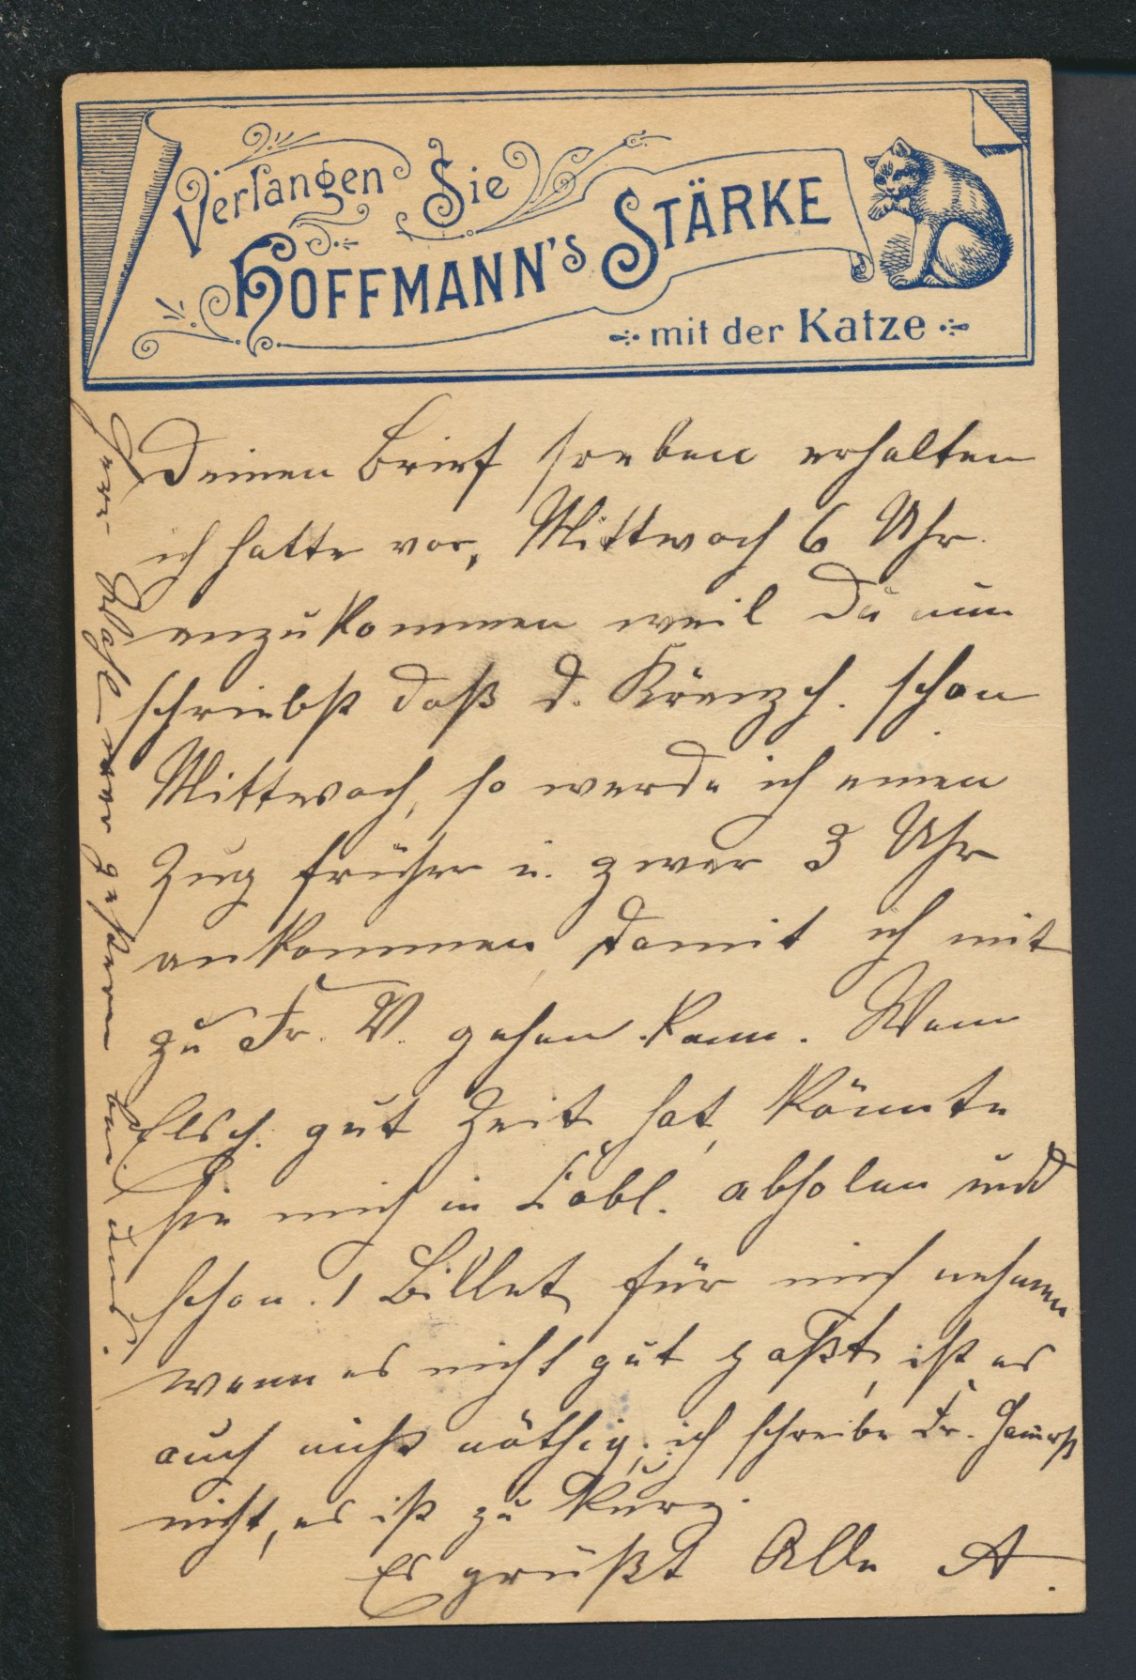 Verlangen Sie
HOFFMANN's STÄRKE
mit der Katze
Deinen Brief soeben erhalten
ich hatte vor, Mittwoch 6 Uhr
anzukommen weil Du nun
schriebst daß d. Kränzch. schon
Mittwoch, so werde ich einen
Zug früher u. zwar 3 Uhr
ankommen, damit ich mit
zu Fr. V. gehen kann. Wenn
Elsch. gut Zeit hat, könnte
sie mich in Cobl. abholen und
schon 1 Billet für mich nehmen
wenn es nicht gut paßt, ist es
auch nicht nöthig, ich schreibe Fr.
nicht, es ist zu kurz.
Es grüßt Alle A.
Herr war gestern bei uns.